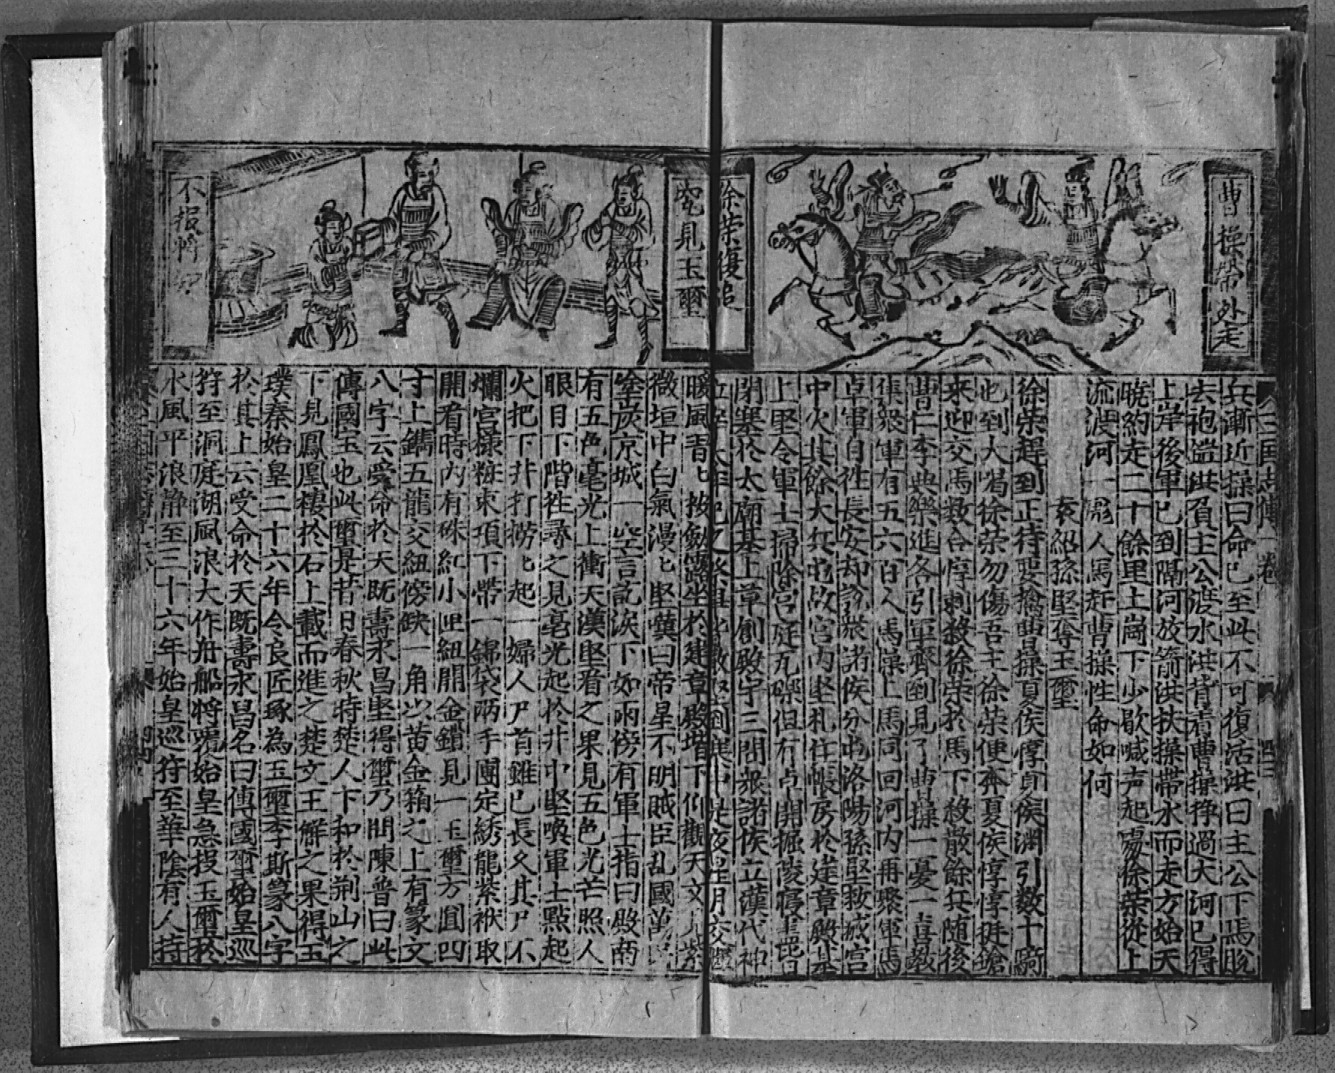 曹操帶水走
徐榮復追
兵漸近操曰命已至此不可復活洪曰主公下馬脫
去袍鎧洪負主公渡水洪背着曹操掙過大河已得
上岸後軍已到隔河放箭洪扶操帶水而走方始天
曉約走二十餘里土崗下少歇喊声起處徐榮從上
流渡河一彪人馬赶曹操性命如何
袁紹孫堅奪玉璽
徐榮趕到正待要擒曹操夏侯惇夏侯渊引数十騎
也到大喝徐榮勿傷吾主徐榮便奔夏侯惇惇挺鎗
來迎交馬数合惇刺殺徐榮於馬下殺散餘兵随後
曹仁李典樂進各引軍齊到見了曹操一憂一喜教
集聚軍有五六百人馬操上馬同回河内再聚軍馬
卓軍自往長安却說衆諸侯分屯洛陽孫堅救滅宮
中火其餘大兵屯故宮内堅札住帳房於建章殿基
上堅令軍士掃除宮庭瓦礫但有卓開掘陵寢盡皆
閉塞於太廟基上草創殿宇三間衆諸侯立漢代神
是夜星月交輝
暖風習匕按劍露坐於建章殿堦下仰觀天文見紫
微垣中白氣漫匕堅嘆曰帝星不明賊臣乱國萬民
塗炭京城一空言訖淚下如雨傍有軍士指曰殿南
有五色毫光上衝天漢堅看之果見五色光芒照人
眼目下階徃尋之見毫光起於井中堅喚軍士點起
火把下井打撈匕起一婦人尸首雖已長久其尸不
爛宮樣粧束項下帶一錦袋兩手團定綉龍紫袱取
開看時内有硃紅小匣紐開金鎖見一玉璽方圓四
寸上鐫五龍交紐傍缺一角以黃金箱之上有篆文
八字云受命於天既壽永昌堅得璽乃問陳普曰此
傳國玉也此璽是昔日春秋時楚人卞和於荆山之
下見鳳凰棲於石上載而進之楚文王觧之果得玉
璞秦始皇二十六年令良匠琢為玉璽李斯篆八字
於其上云受命於天既壽永昌名曰傳國璽始皇巡
狩至洞庭湖風浪大作舟船將覆始皇急投玉璽於
水風平浪静至三十六年始皇巡狩至華陰有人持
究見玉璽
不報